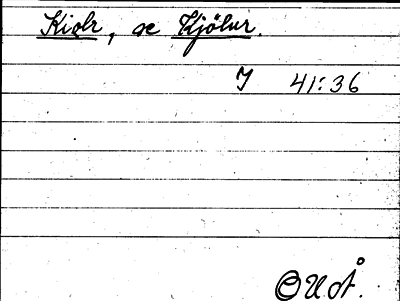 Kiolr, se Kjölur.
I 41:36